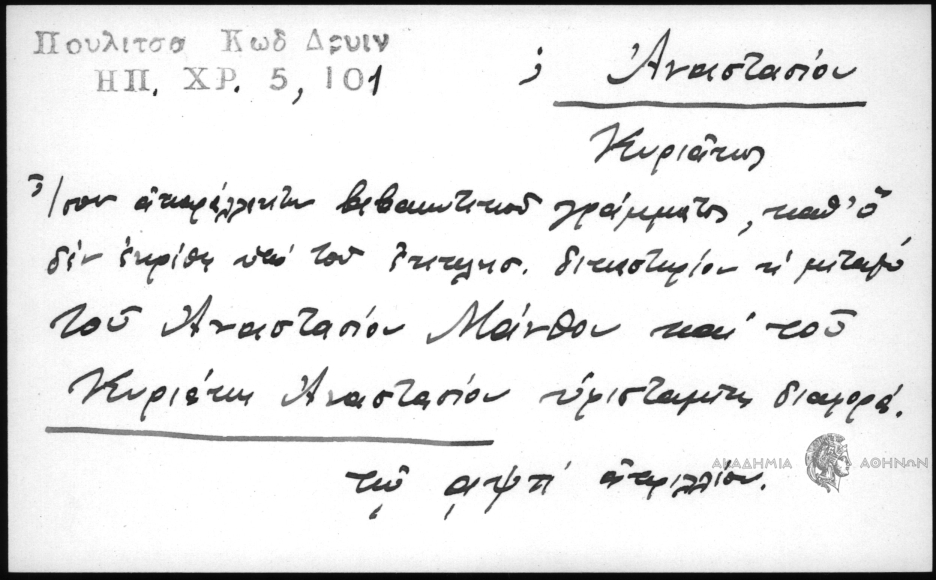 Πουλιτσα Κωδ Δρυιν
ΗΠ. ΧΡ. 5, 101
; Ἀναστασίου
Κυριάκως
ἴσον ἀπαράλλακτον βεβαιωτικοῦ γράμματος, καθ' ὃ
δὲν ἐκρίθη ὑπὸ τοῦ ἐκκλησ. δικαστηρίου ἡ μεταξὺ
τοῦ Ἀναστασίου Μάνθου καὶ τοῦ
Κυριάκη Ἀναστασίου ὑφισταμένη διαφορά.
τῷ αψπ ἀπριλλίου.
ΑΚΑΔΗΜΙΑ ΑΘΗΝΩΝ